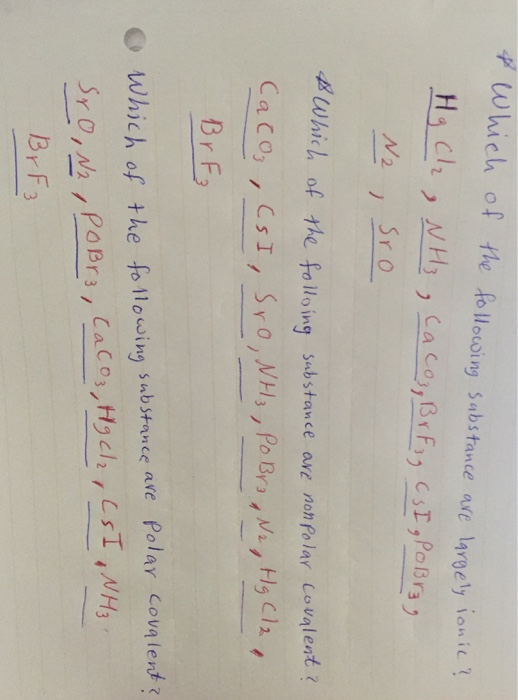 * Which of the following substance are largely ionic?
HgCl2, NH3, CaCO3, BrF3, CsI, POBr3,
N2, SrO
* Which of the folloing substance are nonpolar covalent?
CaCO3, CsI, SrO, NH3, POBr3, N2, HgCl2,
BrF3
Which of the following substance are polar covalent?
SrO, N2, POBr3, CaCO3, HgCl2, CsI, NH3
BrF3